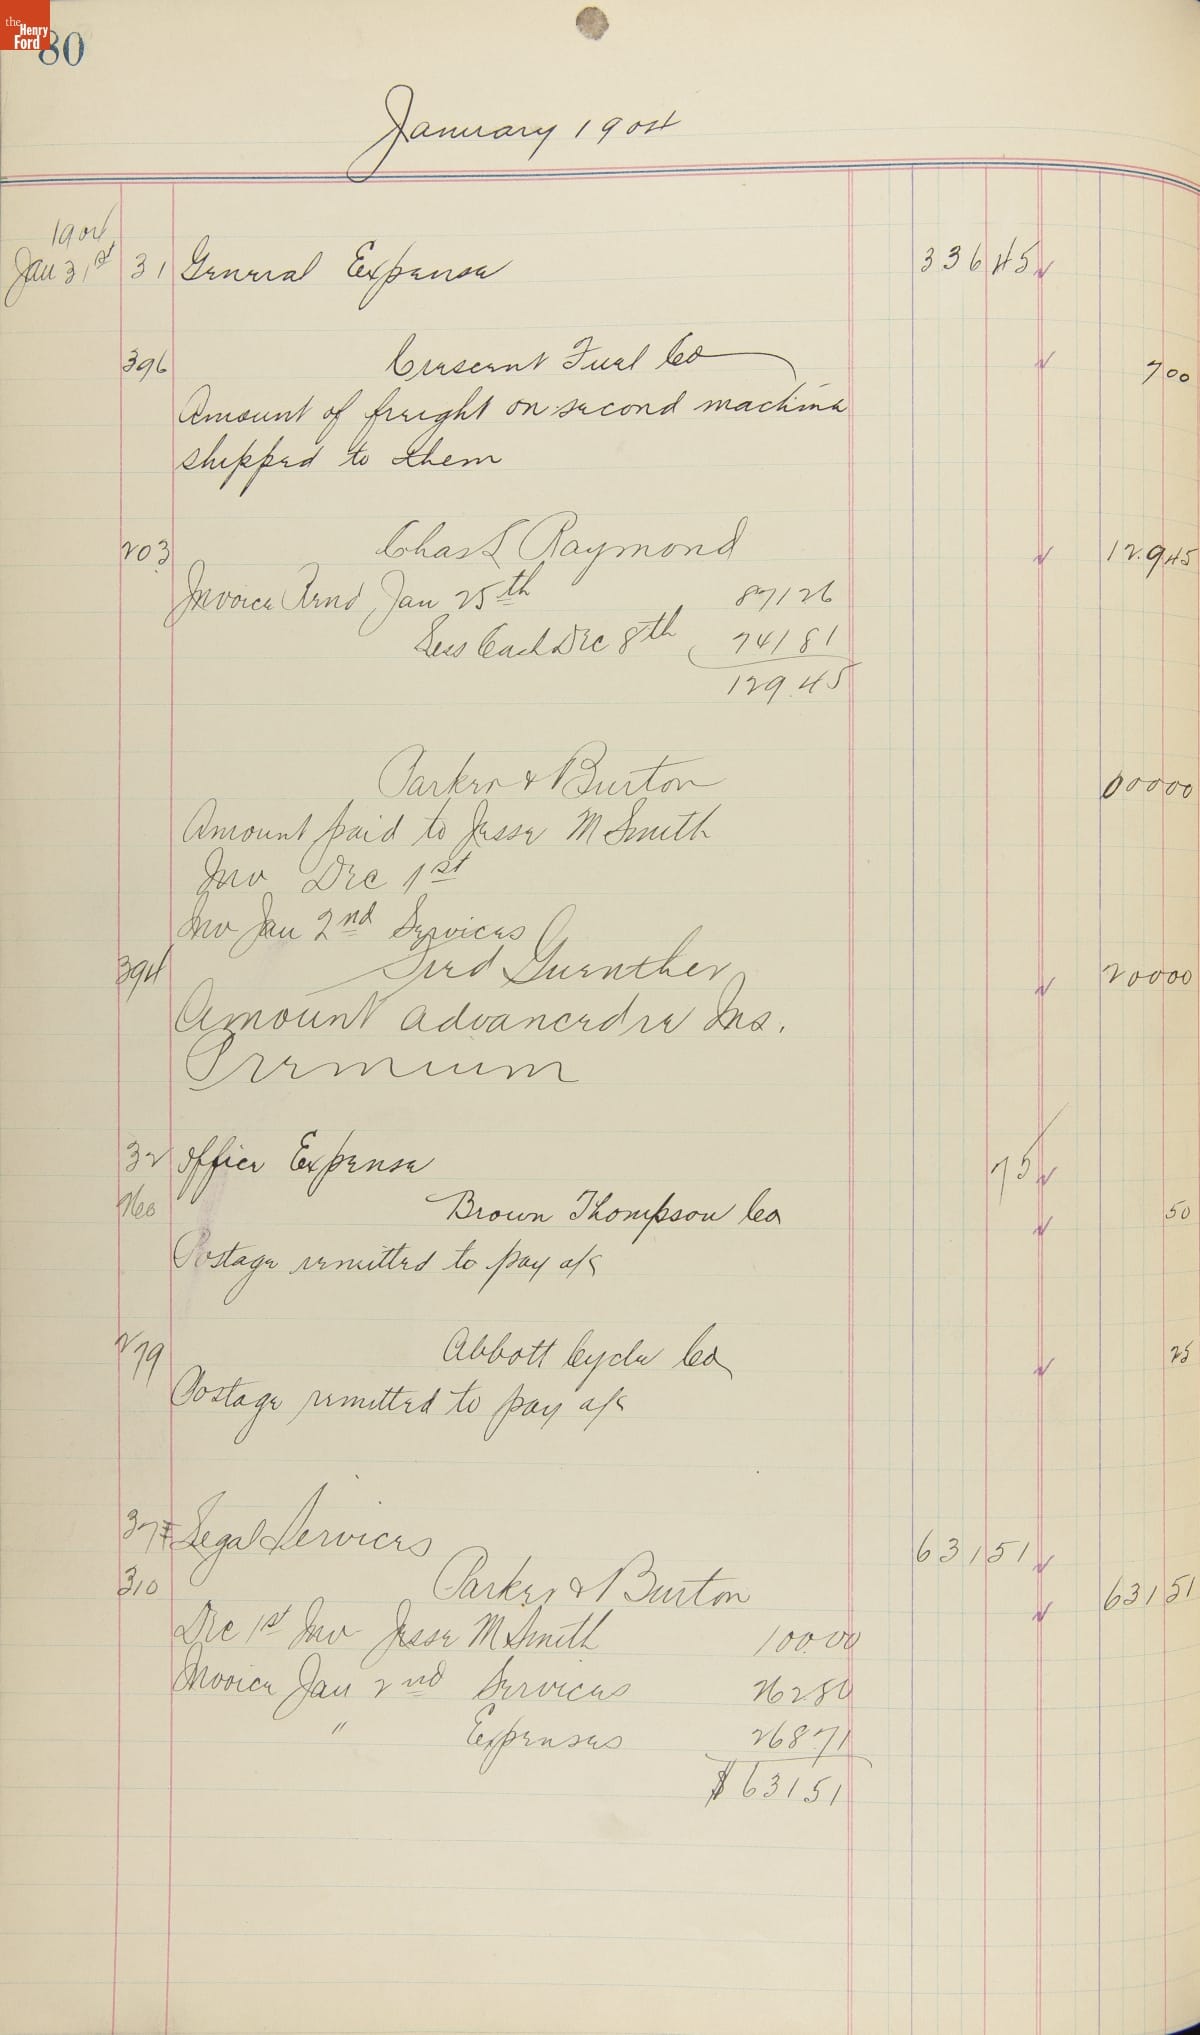 the Henry Ford
80
January 1904
1904
Jan 31st 31 General Expense 336 45
396 Crescent Fuel Co 7 00
Amount of freight on second machine
shipped to them
203 Chas L Raymond 129 45
Invoice Rend Jan 25th 871 26
Less Cash Dec 8th 741 81
129.45
Parker & Burton 000 00
Amount paid to Jesse M Smith
Inv Dec 1st
Inv Jan 2nd Services
394 Fred Guenther 200 00
Amount advanced re Ins.
Premium
32 Office Expense 75
Brown Thompson Co 50
Postage remitted to pay a/c
279 Abbott Cycle Co 25
Postage remitted to pay a/c
37 Legal Services 631 51
310 Parker & Burton 631 51
Dec 1st Inv Jesse M Smith 100.00
Invoice Jan 2nd Services 262.80
" Expenses 268.71
$ 631 51